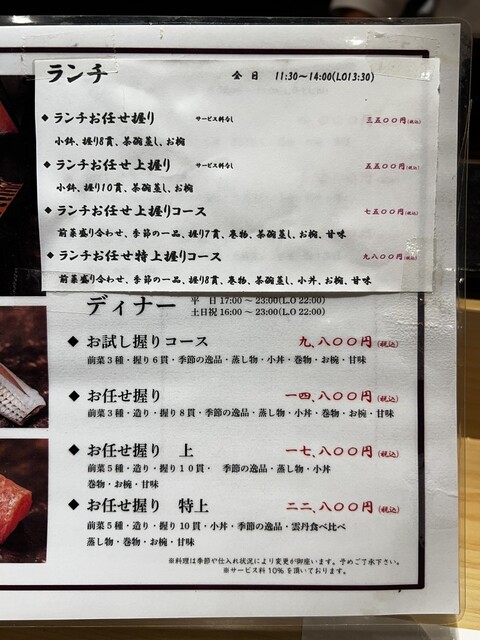 ランチ
全日 11:30〜14:00(LO13:30)
◆ランチお任せ握り サービス料なし 三五〇〇円(税込)
小鉢、握り8貫、茶碗蒸し、お椀
◆ランチお任せ上握り サービス料なし 五五〇〇円(税込)
小鉢、握り10貫、茶碗蒸し、お椀
◆ランチお任せ上握りコース 七五〇〇円(税込)
前菜盛り合わせ、季節の一品、握り7貫、巻物、茶碗蒸し、お椀、甘味
◆ランチお任せ特上握りコース 九八〇〇円(税込)
前菜盛り合わせ、季節の一品、握り8貫、巻物、茶碗蒸し、小丼、お椀、甘味
ディナー 平 日 17:00 〜 23:00(L.O 22:00)
土日祝 16:00 〜 23:00(L.O 22:00)
◆ お試し握りコース 九、八〇〇円(税込)
前菜3種・握り6貫・季節の逸品・蒸し物・小丼・巻物・お椀・甘味
◆ お任せ握り 一四、八〇〇円(税込)
前菜3種・造り・握り8貫・季節の逸品・蒸し物・小丼・巻物・お椀・甘味
◆ お任せ握り 上 一七、八〇〇円(税込)
前菜5種・造り・握り10貫・ 季節の逸品・蒸し物・小丼
巻物・お椀・甘味
◆ お任せ握り 特上 二二、八〇〇円(税込)
前菜5種・造り・握り10貫・小丼・季節の逸品・雲丹食べ比べ
蒸し物・巻物・お椀・甘味
※料理は季節や仕入れ状況により変更が御座います。予めご了承下さい。
※サービス料10%を頂いております。